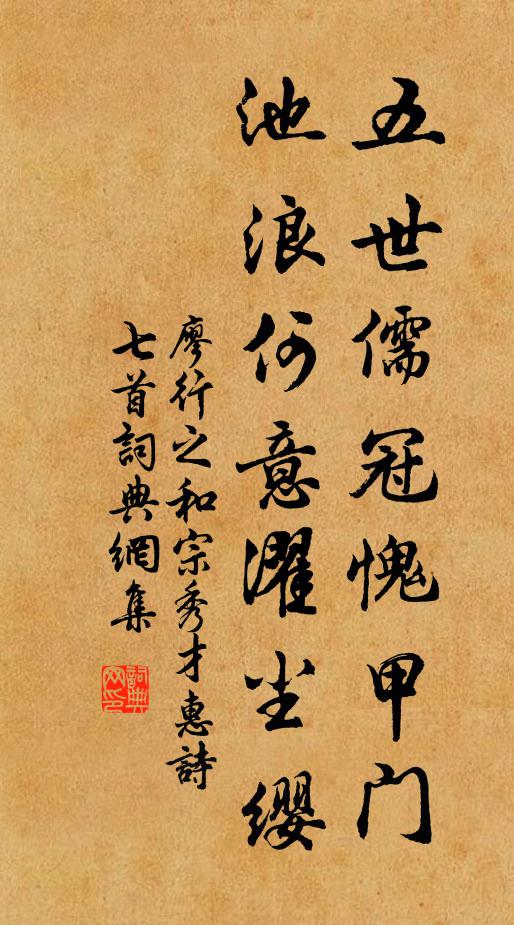 五世儒冠愧甲门
池浪何意濯尘缨
廖行之和宗秀才惠詩
七首詞典網集
詞典網印